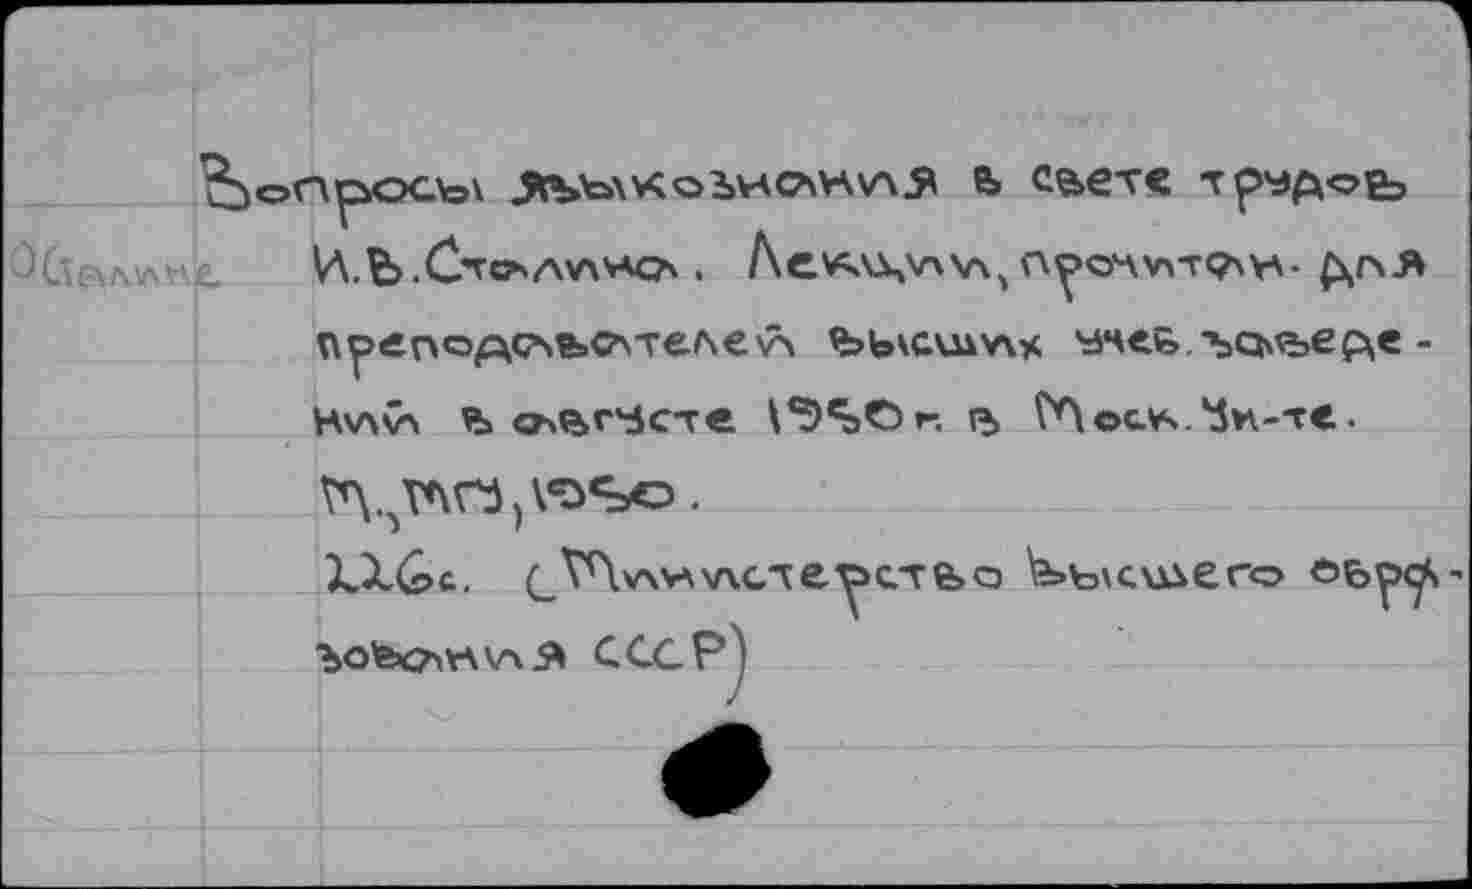 Вопросы языкознания в свете трудов
О Сталине И.В.Сталина. Лекции, прочитан- для
преподавателей высших учеб.заведе-
ний в августе 1950 г. в Моск. Ун-те.
М., МГУ, 1950.
с. (Министерство высшего обра-
зования СССР)